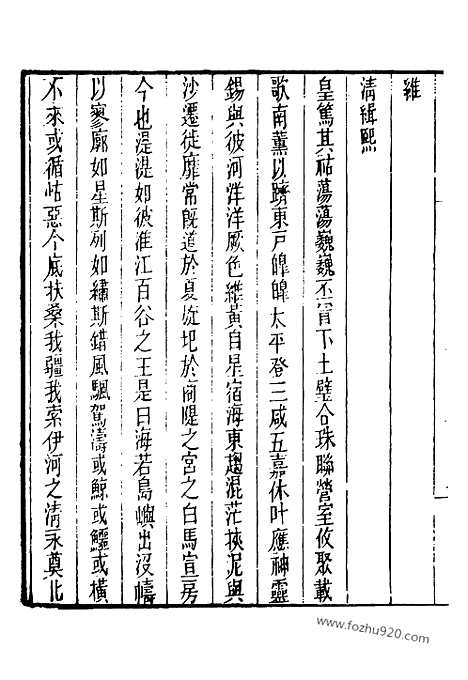 雍
清緝熙
皇篤其祜蕩蕩巍巍丕冒下土璧合珠聯營室攸聚載
歌南薰以躋東戸皥皥太平登三咸五嘉休叶應神靈
錫與彼河洋洋厥色維黃自星宿海東趨混茫挾泥與
沙遷徙靡常旣道於夏旋圯於商隄之宮之白馬宣房
今也湜湜如彼淮江百谷之王是曰海若島嶼出沒幬
以寥廓如星斯列如繡斯錯風颿駕濤或鯨或鱷或橫
不來或循岵惡今底扶桑我疆我索伊河之淸永奠北
www.fozhu920.com